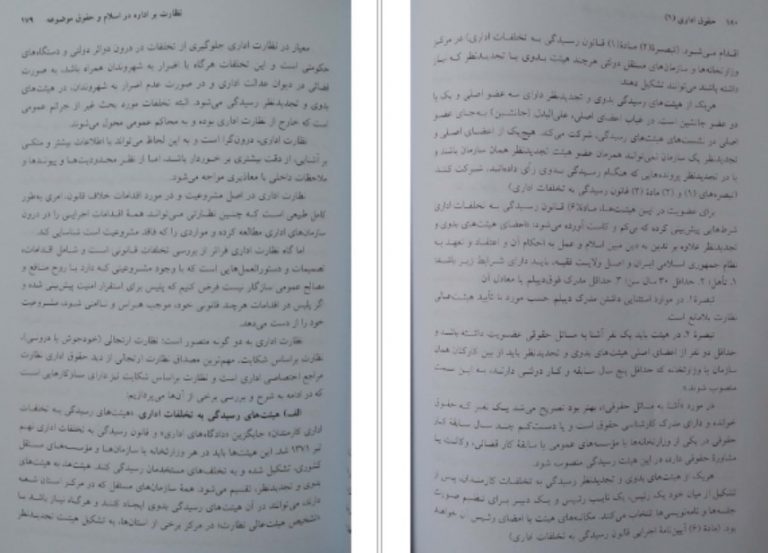 نظارت بر اداره در اسلام و حقوق موضوعه ۱۷۹
معیار در نظارت اداری جلوگیری از تخلفات در درون دوائر دولتی و دستگاه‌های
حکومتی است و این تخلفات هرگاه با اضرار به شهروندان همراه باشد، به صورت
قضائی در دیوان عدالت اداری و در صورت عدم اضرار به شهروندان، در هیئت‌های
بدوی و تجدیدنظر رسیدگی می‌شود. البته تخلفات مورد بحث غیر از جرائم عمومی
است که خارج از نظارت اداری بوده و به محاکم عمومی محول می‌شوند.
نظارت اداری، درون‌گرا است و به این لحاظ می‌تواند با اطلاعات بیشتر و متکی
بر آشنایی، از دقت بیشتری بر خوردار باشد، اما از نظر محدودیت‌ها و پیوندها و
ملاحظات داخلی با معاذیری مواجه می‌شود.
نظارت اداری در اصل مشروعیت و در مورد اقدامات خلاف قانون، امری به‌طور
کامل طبیعی است که چنین نظارتی می‌تواند همهٔ اقدامات اجرایی را در درون
سازمان‌های اداری، مطالعه کرده و مواردی را که فاقد مشروعیت است شناسایی کند.
اما گاه نظارت اداری فراتر از بررسی تخلفات قانونی است و شامل اقدامات،
تصمیمات و دستورالعمل‌هایی است که با وجود مشروعیتی که دارد با روح منافع و
مصالح عمومی سازگار نیست فرض کنیم که پلیس برای استقرار امنیت پیش‌بینی شده و
اگر پلیس در اقدامات هرچند قانونی خود، موجب هراس و ناامنی شود، مشروعیت
خود را از دست می‌دهد.
نظارت اداری به دو گونه متصور است: نظارت ارتجالی (خودجوش یا دروسی)،
نظارت براساس شکایت. مهم‌ترین مصداق نظارت ارتجالی از دید حقوق اداری نظارت
مراجع اختصاصی اداری است و نظارت براساس شکایت نیز دارای سازوکارهایی است
که در ادامه به شرح و بررسی برخی از آن‌ها می‌پردازیم:
الف) هیئت‌های رسیدگی به تخلفات اداری «هیئت‌های رسیدگی به تخلفات
اداری کارمندان» جایگزین «دادگاه‌های اداری» و قانون رسیدگی به تخلفات اداری نهم
تیر ۱۳۷۱ شد. این هیئت‌ها باید در هر وزارتخانه یا سازمان‌ها و مؤسسه‌های مستقل
کشوری، تشکیل شده و به تخلف‌های مستخدمان رسیدگی کنند. هیئت‌ها، به هیئت‌های
بدوی و تجدیدنظر، تقسیم می‌شود. همهٔ سازمان‌های مستقل که در مرکز استان شعبه
دارند، می‌توانند در آن هیئت‌های رسیدگی بدوی ایجاد کنند و هرگاه نیاز باشد با
«تشخیص هیئت‌عالی نظارت» در مرکز برخی از استان‌ها، به تشکیل هیئت تجدیدنظر
۱۸۰ حقوق اداری (۲)
اقدام می‌شود. (تبصرهٔ (۲) مادهٔ (۱) قانون رسیدگی به تخلفات اداری) در مرکز
وزارتخانه‌ها و سازمان‌های مستقل دولتی هرچند هیئت بدوی یا تجدیدنظر که نیاز
داشته باشند می‌توانند تشکیل دهند.
هریک از هیئت‌های رسیدگی بدوی و تجدیدنظر دارای سه عضو اصلی و یک یا
دو عضو جانشین است. در غیاب اعضای اصلی، علی‌البدل (جانشین) به‌جای عضو
اصلی در نشست‌های هیئت‌های رسیدگی، شرکت می‌کند. هیچ‌یک از اعضای اصلی و
تجدیدنظر یک سازمان نمی‌توانند همزمان عضو هیئت تجدیدنظر همان سازمان باشند و
یا در تجدیدنظر پرونده‌هایی که هنگام رسیدگی بدوی رأی داده‌اند، شرکت کنند
(تبصره‌های (۱) و (۲) مادهٔ (۲) قانون رسیدگی به تخلفات اداری)
برای عضویت در این هیئت‌ها، مادهٔ(۶) قانون رسیدگی به تخلفات اداری
شرط‌هایی پیش‌بینی کرده که بی‌کم و کاست آورده می‌شود: «اعضای هیئت‌های بدوی و
تجدیدنظر علاوه بر تدین به دین مبین اسلام و عمل به احکام آن و اعتقاد و تعهد به
نظام جمهوری اسلامی ایران و اصل ولایت فقیه، باید دارای شرایط زیر باشند:
۱. تأهل؛ ۲. حداقل ۳۰ سال سن؛ ۳. حداقل مدرک فوق‌دیپلم یا معادل آن
تبصرهٔ۱. در موارد استثنایی داشتن مدرک دیپلم حسب مورد با تأیید هیئت‌عالی
نظارت بلامانع است.
تبصرهٔ ۲. در هیئت باید یک نفر آشنا به مسائل حقوقی عضویت داشته باشد و
حداقل دو نفر از اعضای اصلی هیئت‌های بدوی و تجدیدنظر باید از بین کارکنان همان
سازمان یا وزارتخانه که حداقل پنج سال سابقه و کار دولتی دارند، به این سمت
منصوب شوند.»
در مورد «آشنا به مسائل حقوقی»، بهتر بود تصریح می‌شد یک نفر که حقوق
خوانده و دارای مدرک کارشناسی حقوق است و یا دست‌کم چند سال سابقهٔ کار
حقوقی در یکی از وزارتخانه‌ها یا مؤسسه‌های عمومی یا سابقهٔ کار قضائی، وکالت یا
مشاورهٔ حقوقی دارند، در این هیئت رسیدگی منصوب شود.
هریک از هیئت‌های بدوی و تجدیدنظر رسیدگی به تخلفات کارمندان، پس از
تشکیل از میان خود یک رئیس، یک نایب رئیس و یک دبیر برای تنظیم صورت
جلسه‌ها و نامه‌نویسی‌ها انتخاب می‌کنند. مکاتبه‌های هیئت با امضای رئیس آن خواهد
بود. (مادهٔ (۶) آیین‌نامهٔ اجرایی قانون رسیدگی به تخلفات اداری)